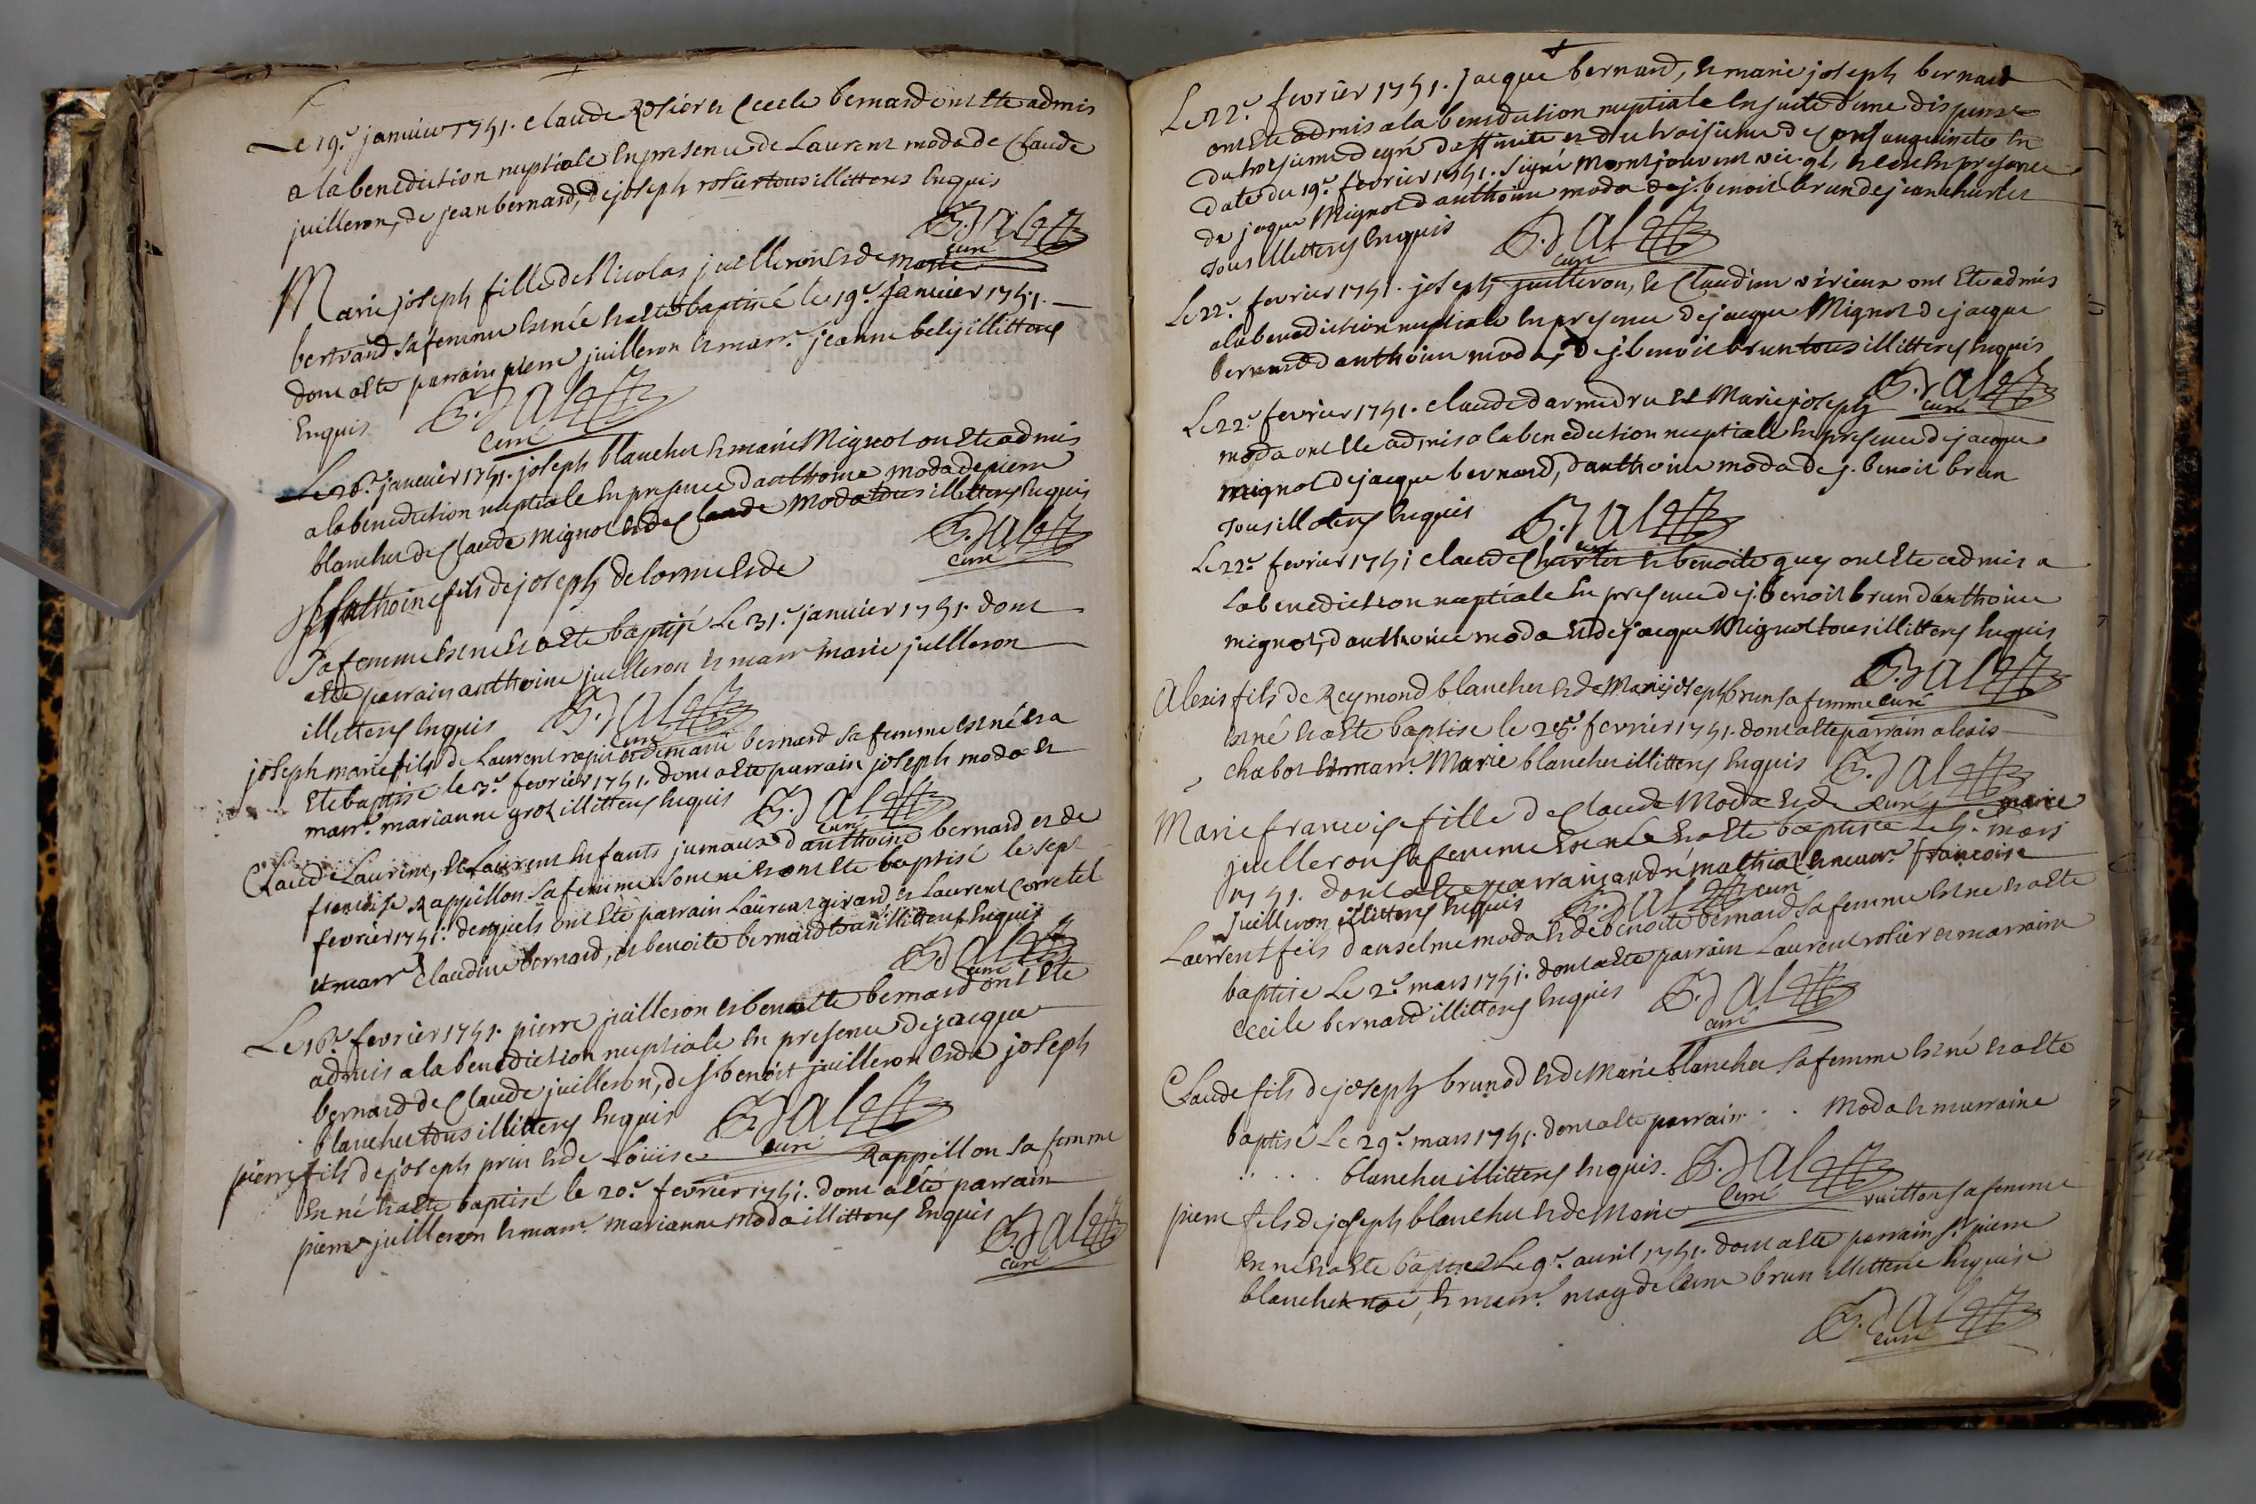 Le 19e. janvier 1751. claude Rosier et Cecile bernard ont ete admis
a la benediction nuptiale en presence de Laurent moda de Claude
juilleron, de jean bernard, de joseph rosier tous illitteres enquis
B. Dalex
curé
Marie joseph fille de Nicolas juilleron et de marie
bertrand sa femme est née et a ete baptisé le 19e. janvier 1751.
dont a ete parrain pierre juilleron et marr. jeanne bely illitteres
enquis B. Dalex
curé
Le 26e. janvier 1751. joseph blanchet et marie Mignot ont ete admis
a la benediction nuptiale en presence d'anthoine moda de pierre
blanchet de Claude mignot et de Claude moda tous illitteres enquis
B. Dalex
curé
anthoine fils de joseph delorme et de
sa femme est né et a ete baptisé Le 31e. janvier 1751. dont a
ete parrain anthoine juilleron et marr marie juilleron
illitteres enquis B. Dalex
curé
joseph marie fils de Laurent et de marie bernard sa femme est né et a
ete baptisé le 3e. fevrier 1751. dont a ete parrain joseph moda et
marr. marianne groz illitteres enquis B. Dalex
curé
Claudi Laurine, et Laurent enfants jumaux d'anthoine bernard et de
francoise Rappillon sa femme sont né et ont ete baptisé le sept
fevrier 1751. desquels ont ete parrain Laurent girard, et Laurent Corretel
et marr Claudine bernard, et benoite bernard tous illitteres enquis
B. Dalex
curé
Le 16e. fevrier 1751. pierre juilleron et benoite bernard ont ete
admis a la benediction nuptiale en presence de jacque
bernard de Claude juilleron, de j. benoit juilleron et de joseph
blanchet tous illitteres enquis B. Dalex
curé
pierre fils de joseph prin et de Louise Rappillon sa femme
est né et a ete baptisé le 20e. fevrier 1751. dont a eté parrain
pierre juilleron et marr. marianne moda illitteres enquis
B. Dalex
curé
Le 22e. fevrier 1751. jacque bernard, et marie joseph bernard
ont ete admis a la benediction nuptiale ensuite d'une dispense
du troisieme degré d'affinite et du troisieme de consanguinete en
date du 19e. fevrier 1751. signé Montjouvent vic. gl. et ce en presence
de jaque Mignot d'anthoine moda de j. benoit brun de jean
tous illitteres enquis B. Dalex
curé
Le 22e. fevrier 1751. joseph juilleron, et Claudine virieux ont ete admis
a la benediction nuptiale en presence de jacque Mignot de jacque
bernard d'anthoine moda, de j. benoit brun tous illitteres enquis
B. Dalex
curé
Le 22e. fevrier 1751. claude darmedru et Marie joseph
moda ont ete admis a la benediction nuptiale en presence de jacque
mignot de jacque bernard, d'anthoine moda de j. benoit brun
tous illitteres enquis B. Dalex
curé
Le 22e. fevrier 1751 claude et benoite guy ont ete admis a
la benediction nuptiale en presence de j. benoit brun d'anthoine
mignot, d'anthoine moda et de jacque Mignot tous illitteres enquis
B. Dalex
curé
Alexis fils de Reymond blanchet et de Marie joseph brun sa femme
est né et a ete baptise le 28e. fevrier 1751. dont a ete parrain alexis
chabot et marr. Marie blanchet illitteres enquis B. Dalex
curé
Marie francoise fille de Claude Moda et de marie
juilleron sa femme est née et a ete baptisée le 5e. mars
1751. dont a ete parrain andré mathiat et marr. francoise
juilleron illitteres enquis B. Dalex curé
Laurent fils d'anselme moda et de benoite bernard sa femme est né et a ete
baptisé Le 2e. mars 1751. dont a ete parrain Laurent rosier et marraine
Cecile bernard illitteres enquis B. Dalex
curé
Claude fils de joseph brunod et de Marie blanchet sa femme est né et a ete
baptisé Le 29e. mars 1751. dont a ete parrain . . Moda et marraine
. . . . blanchet illitteres enquis. B. Dalex
curé
pierre fils de joseph blanchet et de Marie vuitton sa femme
est né et a ete baptisé Le 9e. avril 1751. dont a ete parrain sr. pierre
blanchet, et marr. magdeleine brun illitterée enquise
B. Dalex
curé